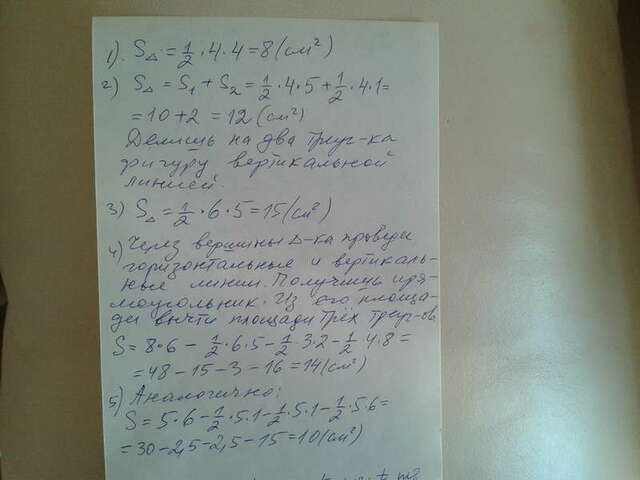 1). S△ = 1/2 · 4 · 4 = 8 (см²)
2) S△ = S₁ + S₂ = 1/2 · 4 · 5 + 1/2 · 4 · 1 =
= 10 + 2 = 12 (см²)
Делишь на два треуг-ка
фигуру вертикальной
линией.
3) S△ = 1/2 · 6 · 5 = 15 (см²)
4) Через вершины △-ка проведи
горизонтальные и вертикаль-
ные линии. Получишь пря-
моугольник. Из его площа-
ди вычти площади трёх треуг-ов
S = 8 · 6 - 1/2 · 6 · 5 - 1/2 · 3 · 2 - 1/2 · 4 · 8 =
= 48 - 15 - 3 - 16 = 14 (см²)
5) Аналогично:
S = 5 · 6 - 1/2 · 5 · 1 - 1/2 · 5 · 1 - 1/2 · 5 · 6 =
= 30 - 2,5 - 2,5 - 15 = 10 (см²)